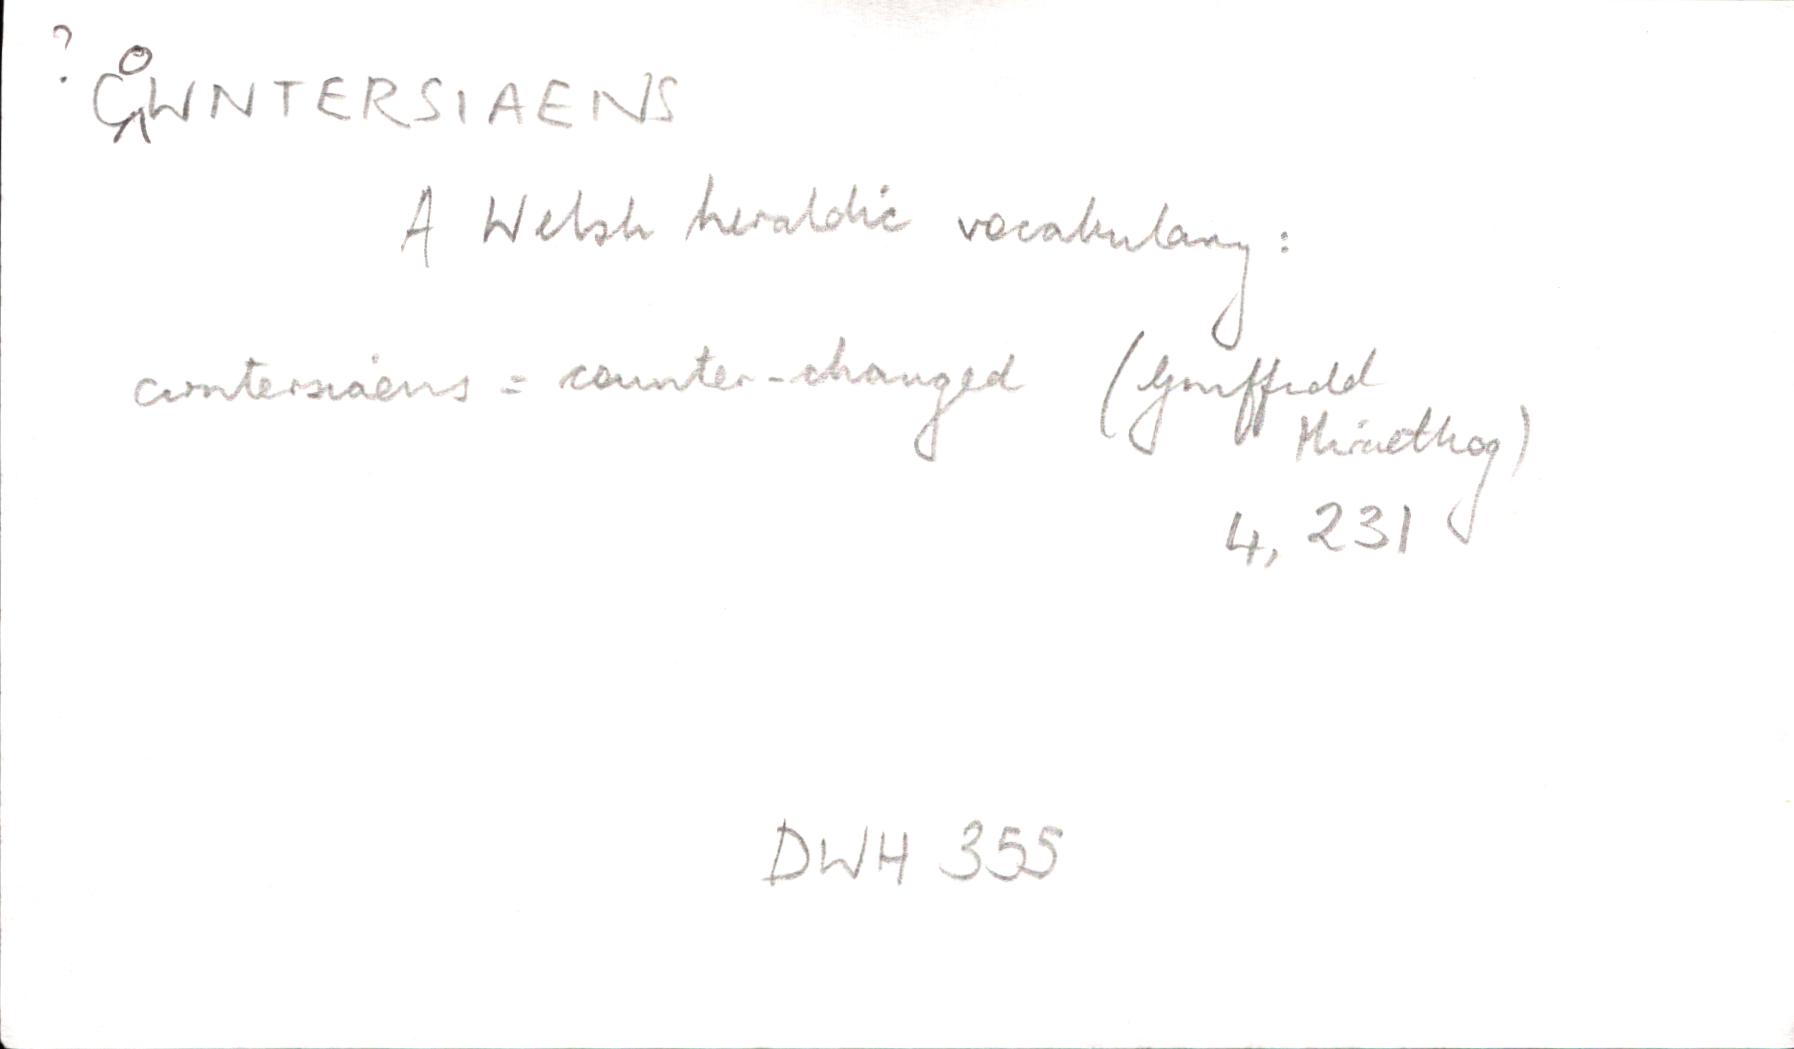 ? COWNTERSIAENS
A Welsh heraldic vocabulary:
cwntersiaens = counter-changed (Gruffudd
Hiraethog)
4, 231
DWH 355